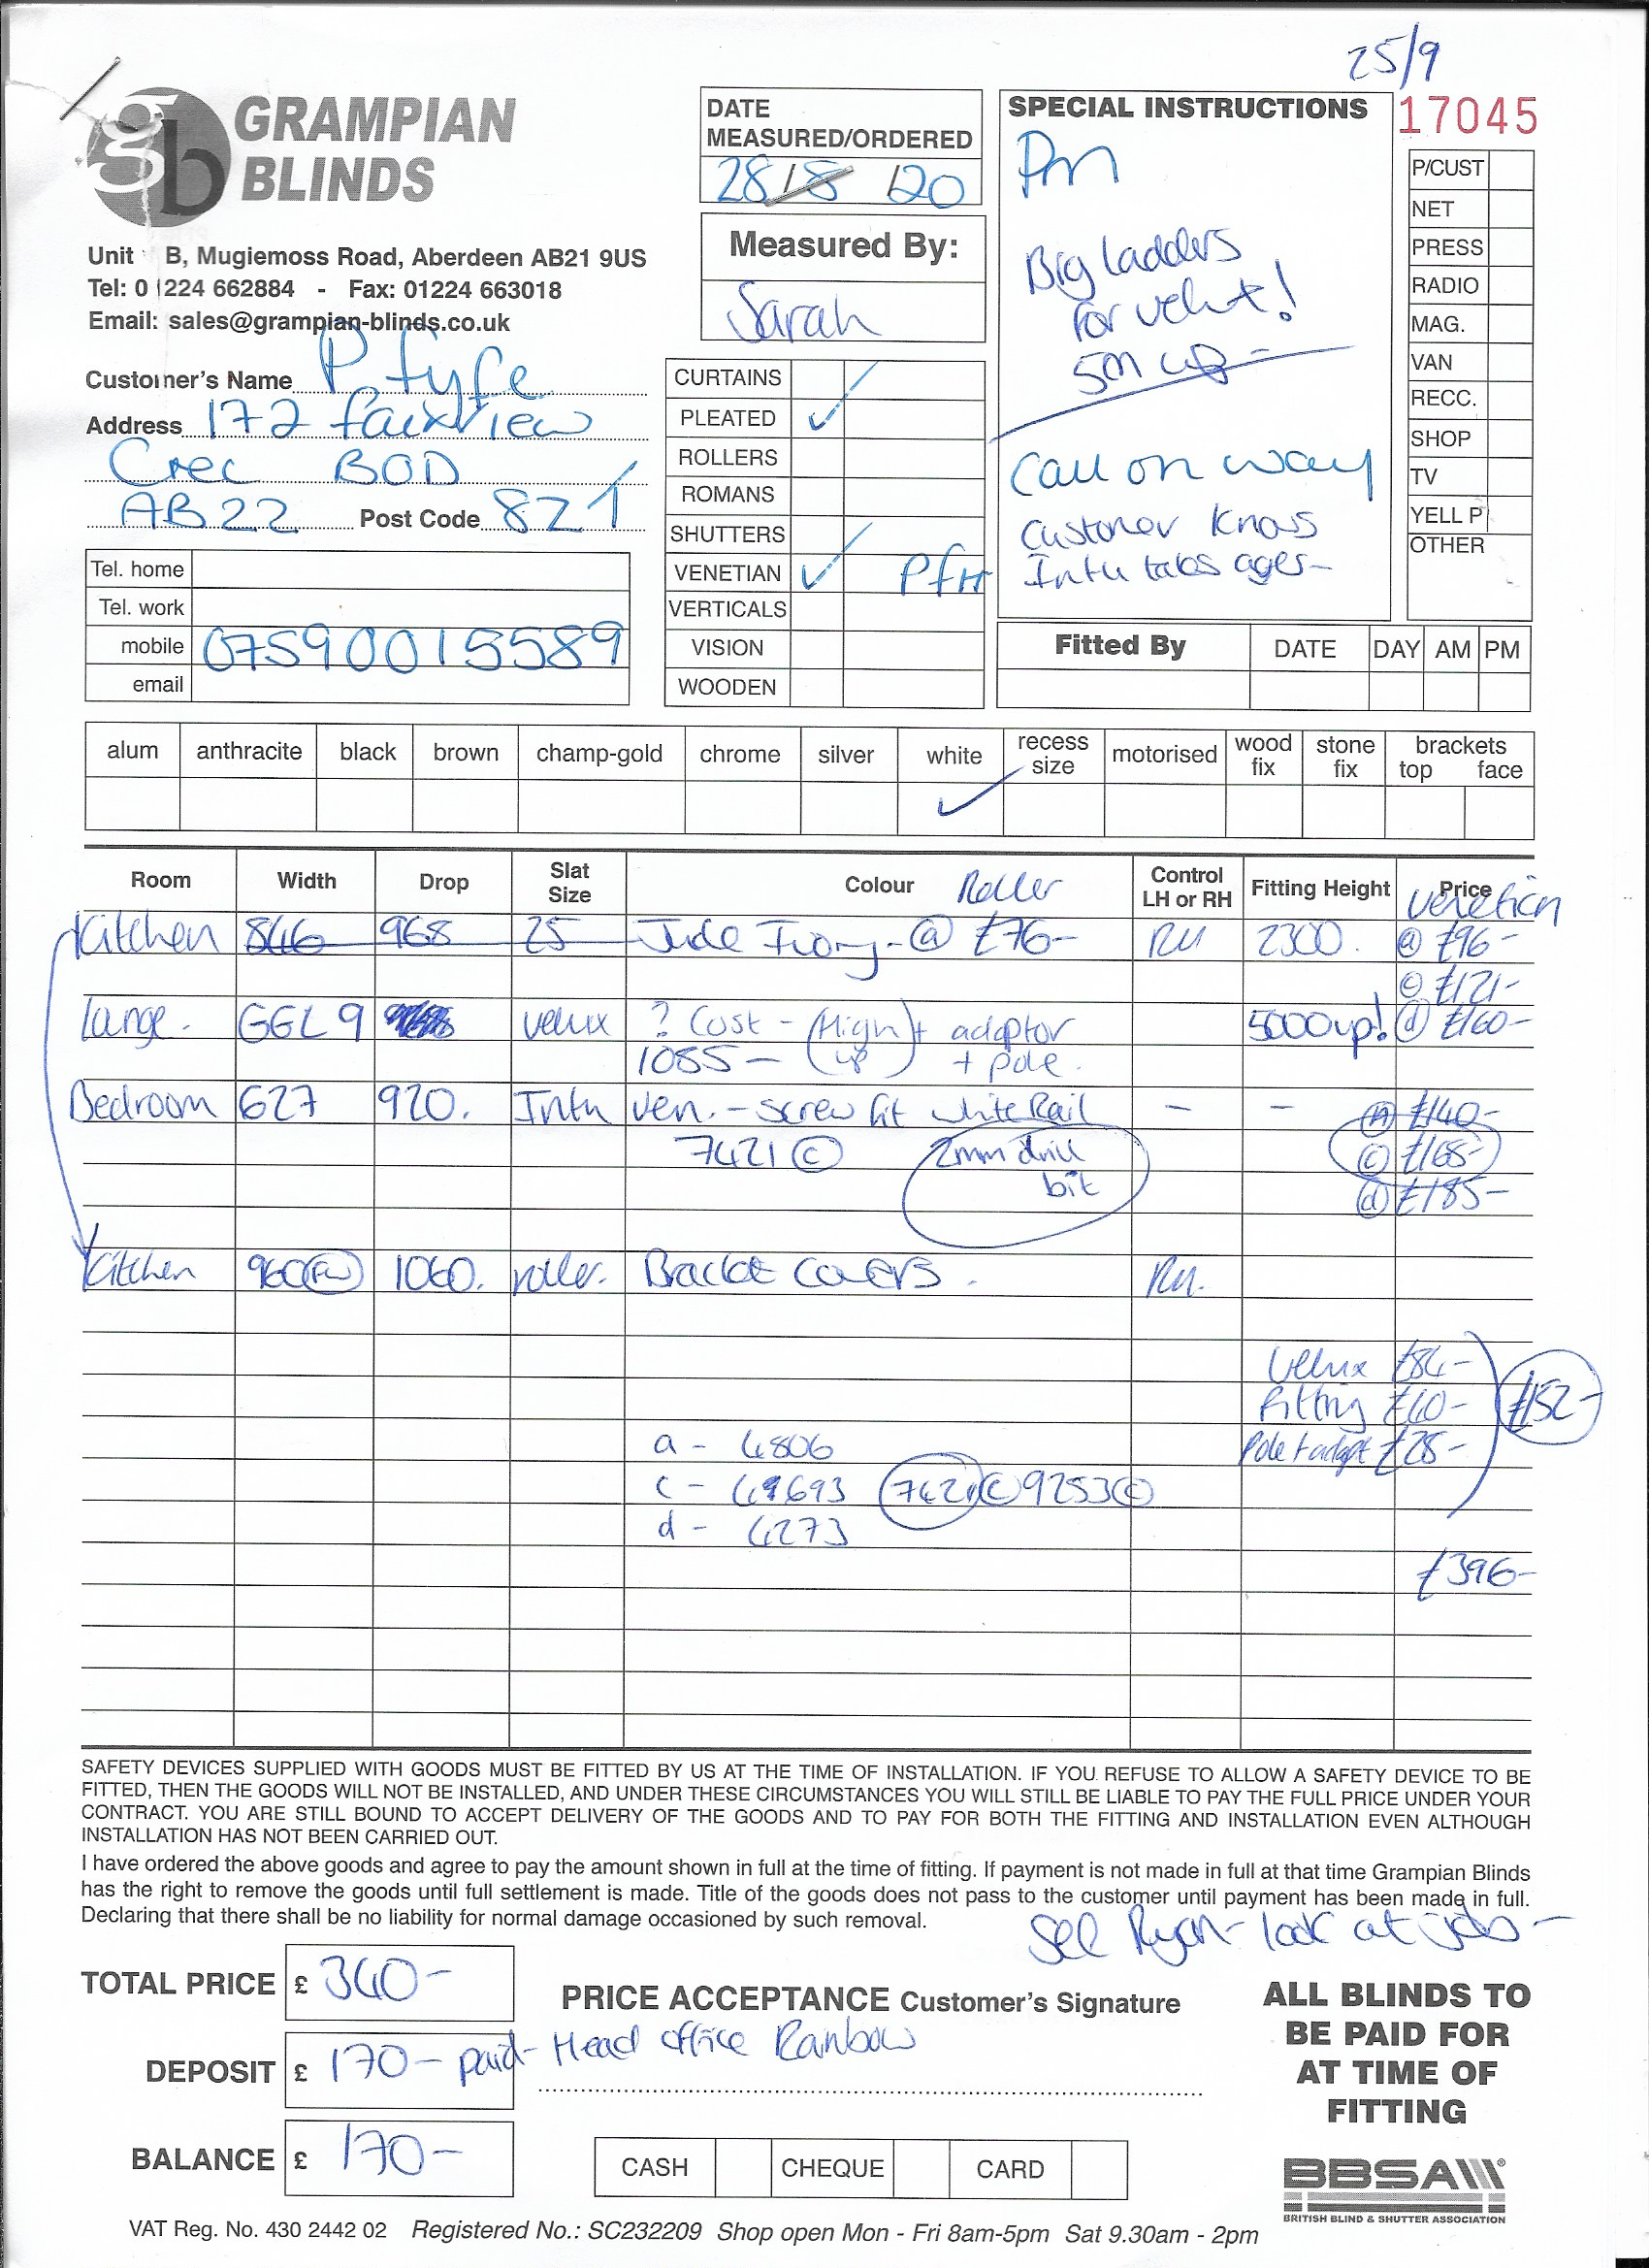 25/9
GRAMPIAN
BLINDS
Unit B, Mugiemoss Road, Aberdeen AB21 9US
Tel: 01224 662884 - Fax: 01224 663018
Email: sales@grampian-blinds.co.uk
DATE
MEASURED/ORDERED
28/8/20
Measured By:
Sarah
SPECIAL INSTRUCTIONS
Pm
Big ladders
for velux!
5m up -
Call on way
Customer knows
Intu takes ages-
17045
P/CUST
NET
PRESS
RADIO
MAG.
VAN
RECC.
SHOP
TV
YELL P
OTHER
Customer's Name P. Fyfe
Address 172 Fairview
Crec BOD
AB22 Post Code 8Z
Tel. home
Tel. work
mobile 07590015589
email
CURTAINS
PLEATED ✓
ROLLERS
ROMANS
SHUTTERS
VENETIAN ✓ PfH
VERTICALS
VISION
WOODEN
Fitted By DATE DAY AM PM
alum anthracite black brown champ-gold chrome silver white recess size motorised wood fix stone fix brackets top face
✓
Room Width Drop Slat Size Colour Roller Control LH or RH Fitting Height Price Venetian
Kitchen 846 968 25 Jude Ivory - @ £76- RH 2300. @ £96-
© £121-
Lounge - GGL9 velux ? Cost - (High up) + adaptor 5000up! ⓓ £160-
1085 - + pole.
Bedroom 627 920. Intu Ven. - screw fit white Rail - - £140-
7421 © 2mm drill bit © £168-
ⓓ £185-
Kitchen 960 1060. roller. Bracket covers. RH.
Velux £84-
Fitting £40- £152-
Pole + adapt £28-
a - 4806
c - 7421 © 9253 ©
d - 4273
£396-
SAFETY DEVICES SUPPLIED WITH GOODS MUST BE FITTED BY US AT THE TIME OF INSTALLATION. IF YOU REFUSE TO ALLOW A SAFETY DEVICE TO BE
FITTED, THEN THE GOODS WILL NOT BE INSTALLED, AND UNDER THESE CIRCUMSTANCES YOU WILL STILL BE LIABLE TO PAY THE FULL PRICE UNDER YOUR
CONTRACT. YOU ARE STILL BOUND TO ACCEPT DELIVERY OF THE GOODS AND TO PAY FOR BOTH THE FITTING AND INSTALLATION EVEN ALTHOUGH
INSTALLATION HAS NOT BEEN CARRIED OUT.
I have ordered the above goods and agree to pay the amount shown in full at the time of fitting. If payment is not made in full at that time Grampian Blinds
has the right to remove the goods until full settlement is made. Title of the goods does not pass to the customer until payment has been made in full.
Declaring that there shall be no liability for normal damage occasioned by such removal.
See Ryan - look at jobs -
TOTAL PRICE £ 340-
PRICE ACCEPTANCE Customer's Signature
DEPOSIT £ 170- paid- Head office Rainbow
BALANCE £ 170-
CASH CHEQUE CARD
ALL BLINDS TO
BE PAID FOR
AT TIME OF
FITTING
BBSA
BRITISH BLIND & SHUTTER ASSOCIATION
VAT Reg. No. 430 2442 02 Registered No.: SC232209 Shop open Mon - Fri 8am-5pm Sat 9.30am - 2pm